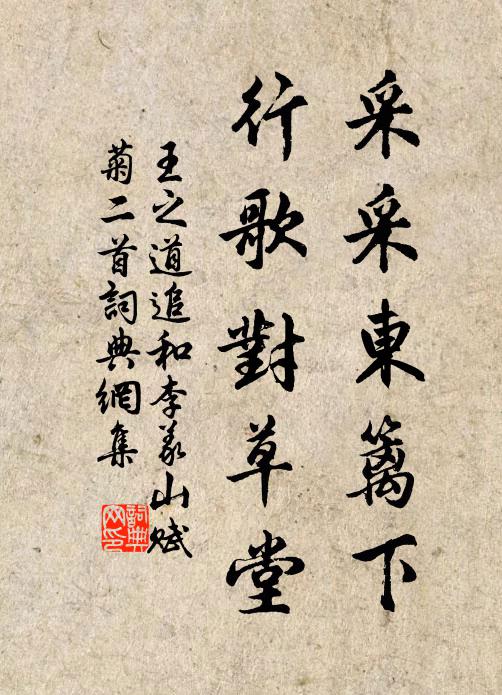 采采東篱下
行歌對草堂
王之道追和李義山賦
菊二首詞典網集
詞典
网印